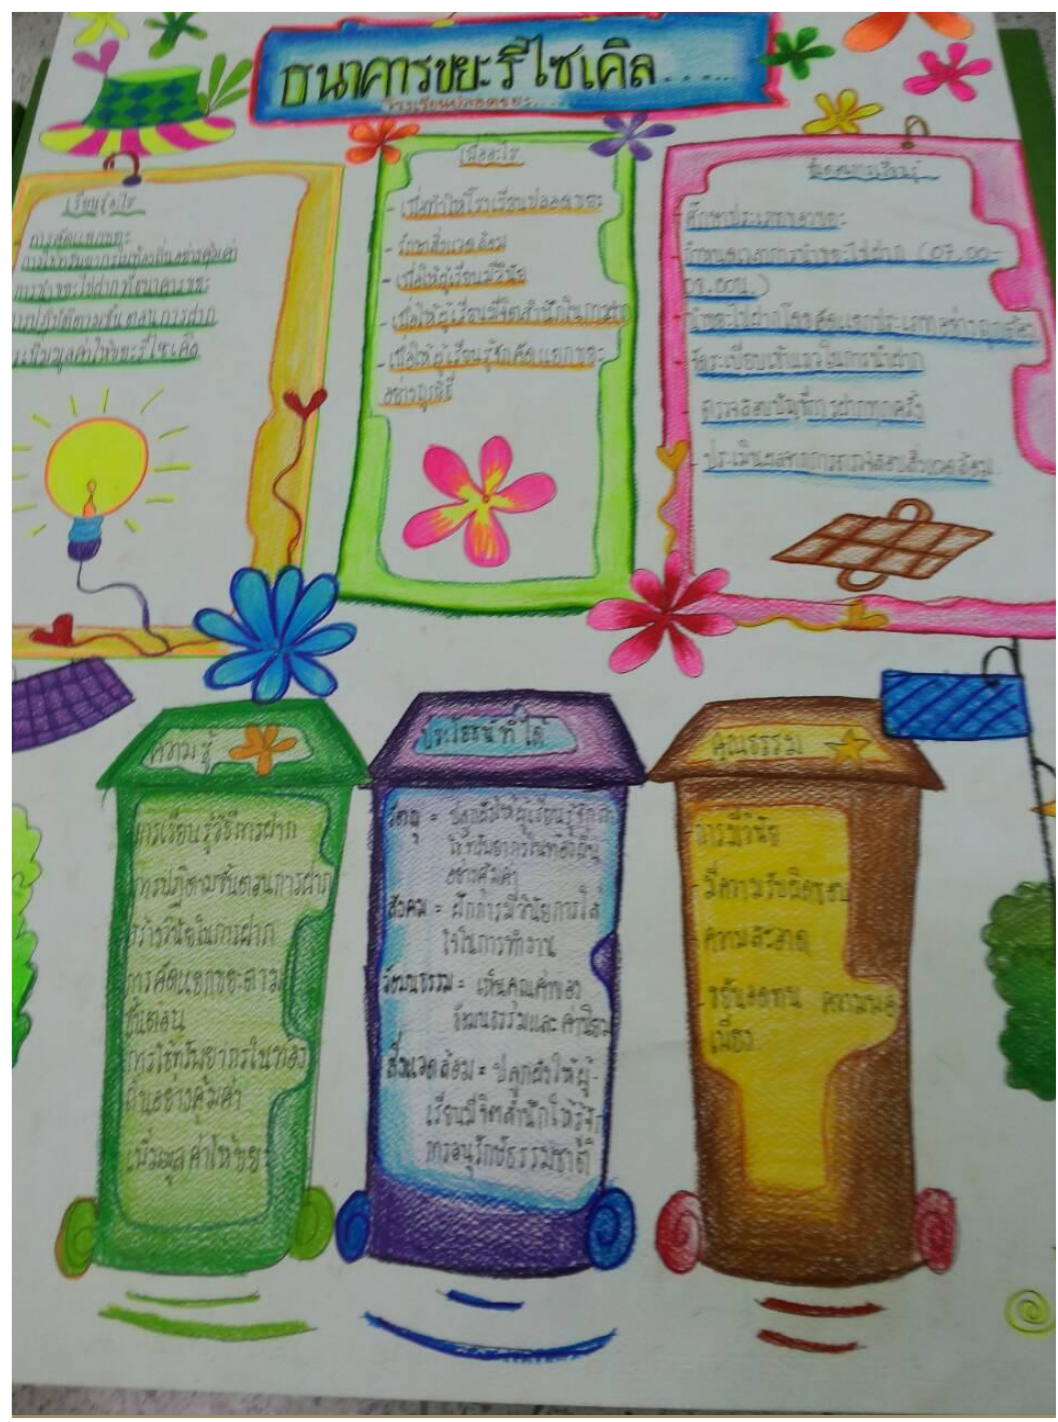 ธนาคารขยะรีไซเคิล........
โรงเรียนปลอดขยะ....
เรียนรู้อะไร
การคัดแยกขยะ
การใช้ทรัพยากรในท้องถิ่นอย่างคุ้มค่า
การนำขยะไปฝากที่ธนาคารขยะ
การปฏิบัติตามขั้นตอนการฝาก
เพิ่มมูลค่าให้ขยะรีไซเคิล
เพื่ออะไร
- เพื่อทำให้โรงเรียนปลอดขยะ
- รักษาสิ่งแวดล้อม
- เพื่อให้ผู้เรียนมีวินัย
- เพื่อให้ผู้เรียนมีจิตสำนึกในการฝาก
- เพื่อให้ผู้เรียนรู้จักคัดแยกขยะ
อย่างถูกวิธี
ขั้นตอนการเรียนรู้
- ศึกษาประเภทของขยะ
- กำหนดเวลาการนำขยะไปฝาก (07.00-
08.00น.)
- นำขยะไปฝากโดยคัดแยกประเภทอย่างถูกต้อง
- จัดระเบียบเข้าแถวในการนำฝาก
- ตรวจสอบบัญชีการฝากทุกครั้ง
- ประเมินผลจากการตรวจสอบสิ่งแวดล้อม
ความรู้
การเรียนรู้วิธีการฝาก
การปฏิตามขั้นตอนการฝาก
สร้างวินัยในการฝาก
การคัดแยกขยะตาม
ขั้นตอน
การใช้ทรัพยากรในท้อง
ถิ่นอย่างคุ้มค่า
เพิ่มมูลค่าให้ขยะ
ประโยชน์ที่ได้
วัตถุ = ปลูกฝังให้ผู้เรียนรู้จัก
ใช้ทรัพยากรในท้องถิ่น
อย่างคุ้มค่า
สังคม = ฝึกการมีวินัยการใส่
ใจในการทำงาน
วัฒนธรรม = เห็นคุณค่าของ
วัฒนธรรมและค่านิยม
สิ่งแวดล้อม = ปลูกฝังให้ผู้-
เรียนมีจิตสำนึกให้รู้จัก
การอนุรักษ์ธรรมชาติ
คุณธรรม
- การมีวินัย
- มีความรับผิดชอบ
- ความสะอาด
- ขยันอดทน ความพอ
เพียง